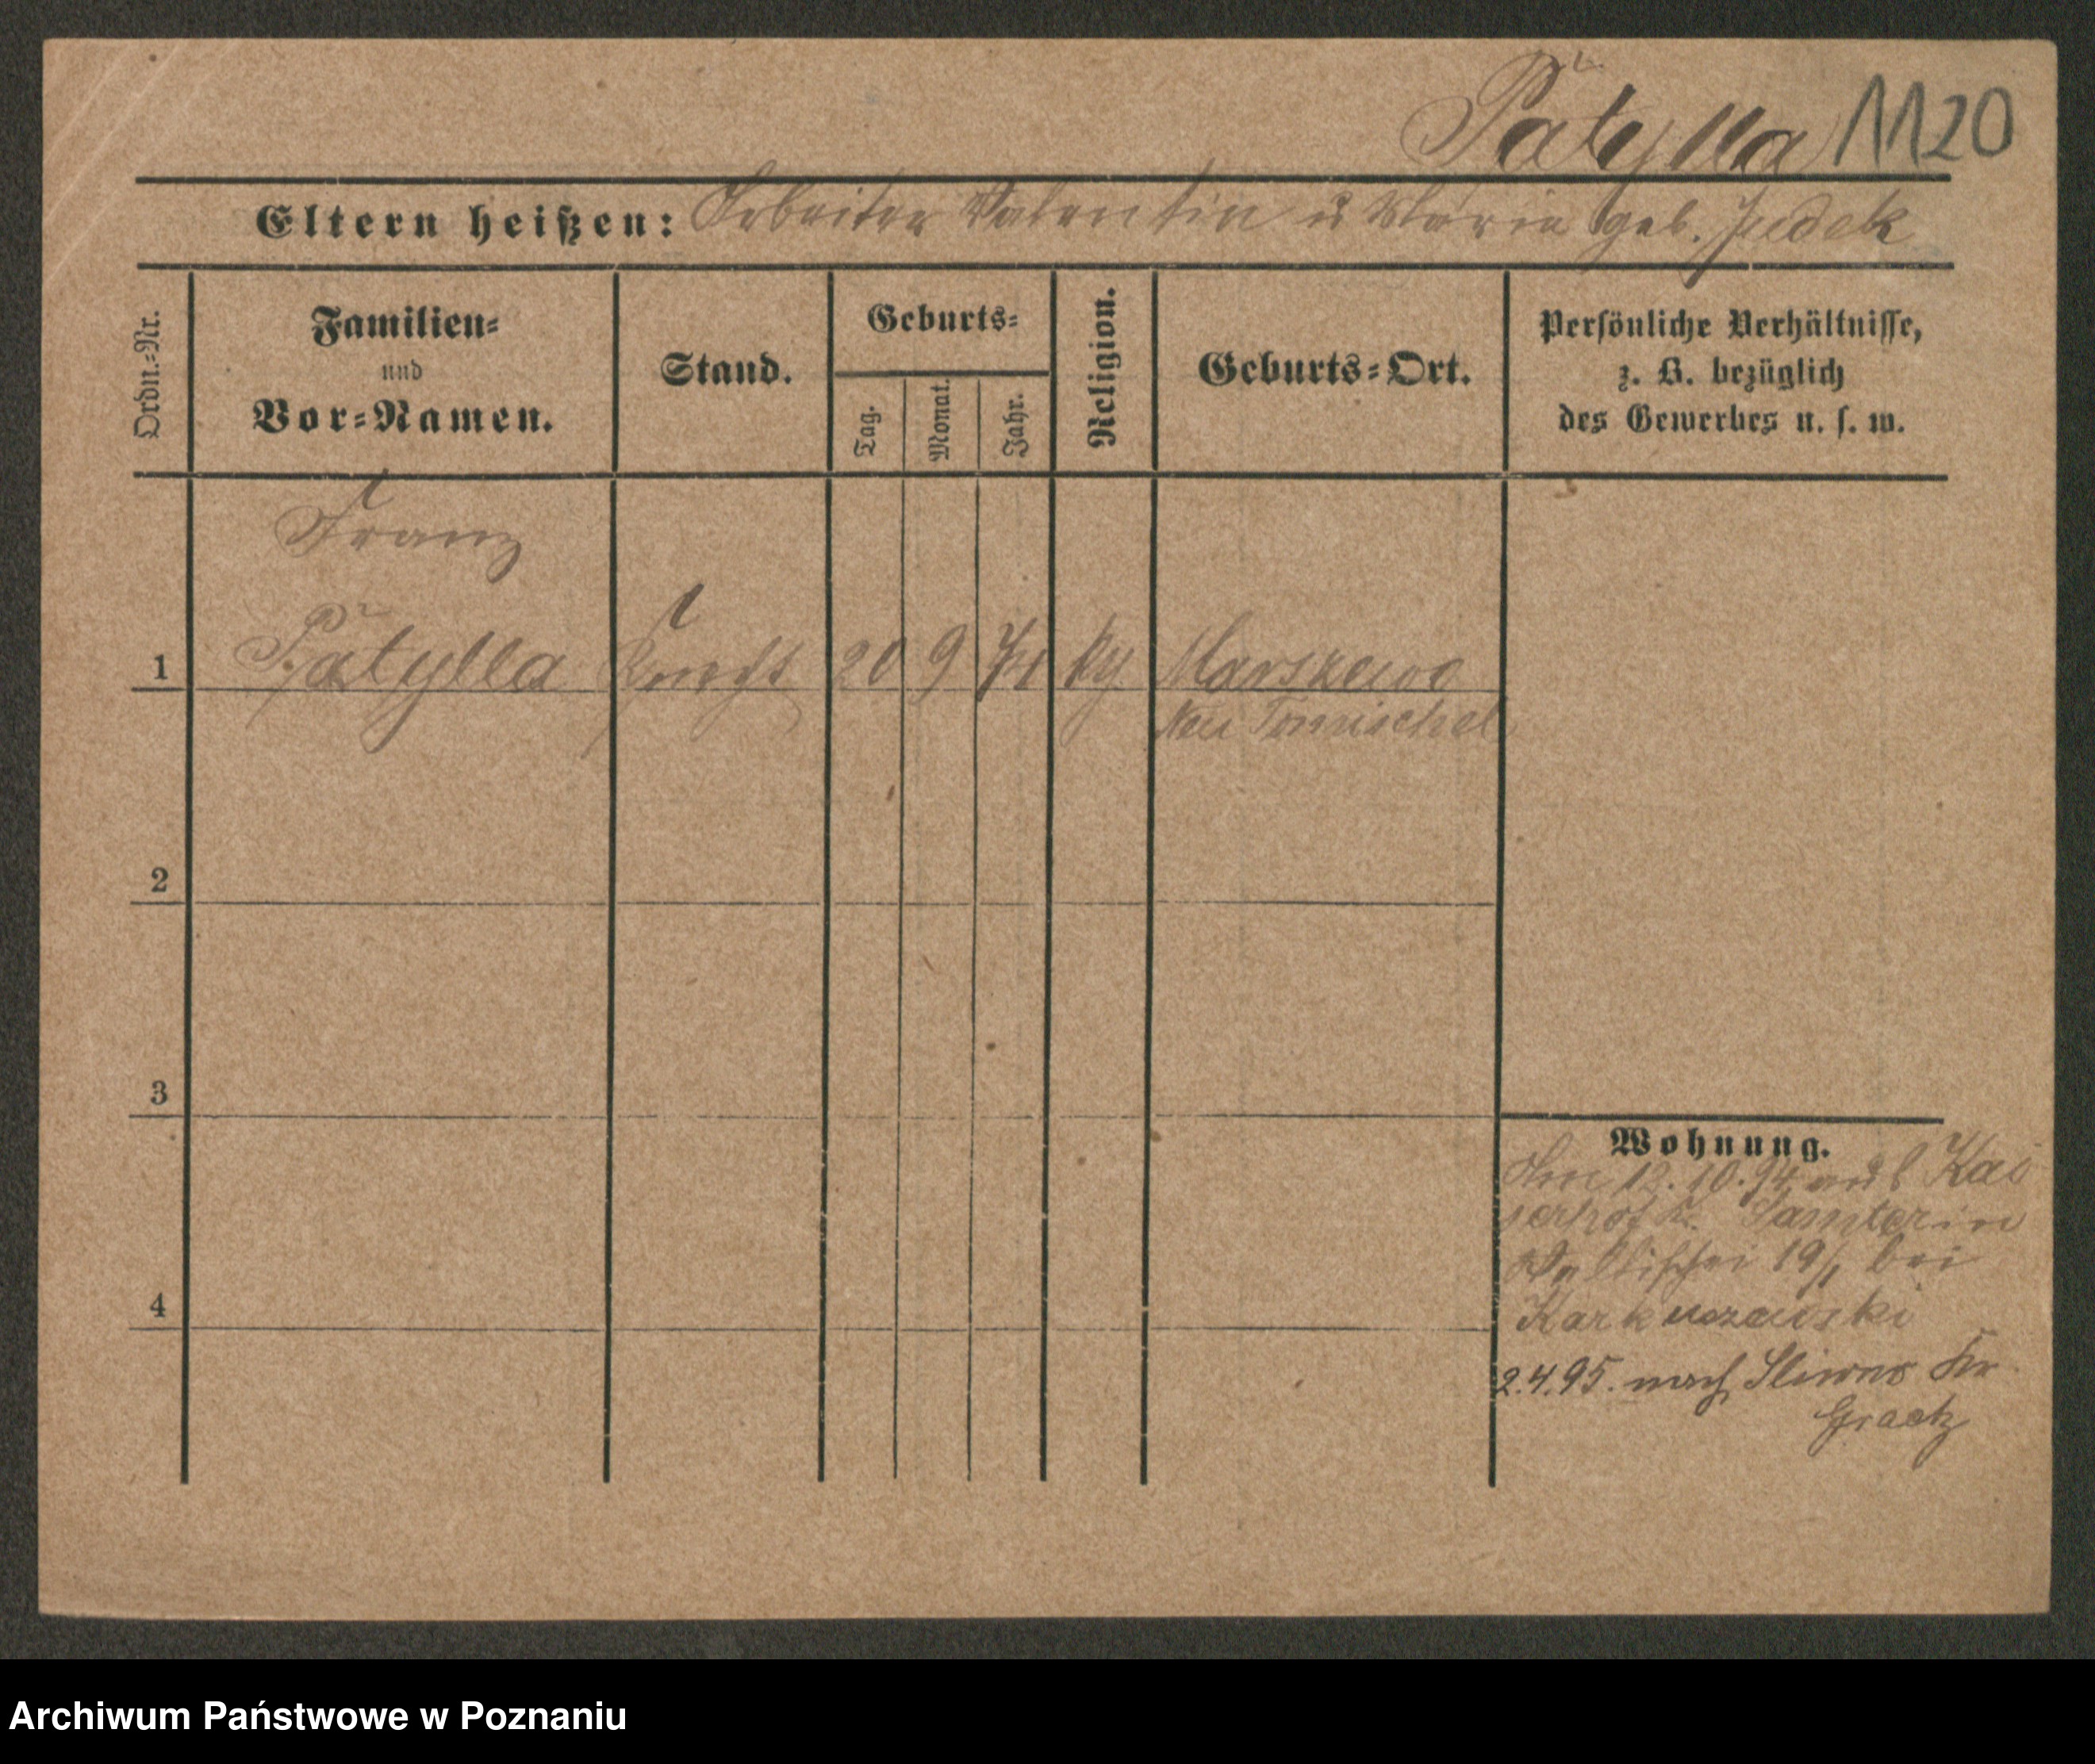 Patylla 1120
Eltern heißen: Arbeiter Valentin u Maria geb. Judek
Ordn.-Nr.
Familien-
und
Vor-Namen.
Stand.
Geburts-
Tag.
Monat.
Jahr.
Religion.
Geburts-Ort.
Persönliche Verhältnisse,
z. B. bezüglich
des Gewerbes u. s. w.
Franz
1 Patylla Knecht 20 9 71 kg Marszewo
Neu Tomischel
2
3
4
Wohnung.
Am 12.10.94 aus Kai
serhof K. Samter in
Wallischei 19/1 bei
2.4.95. nach Sliwno Kr
Graetz
Archiwum Państwowe w Poznaniu